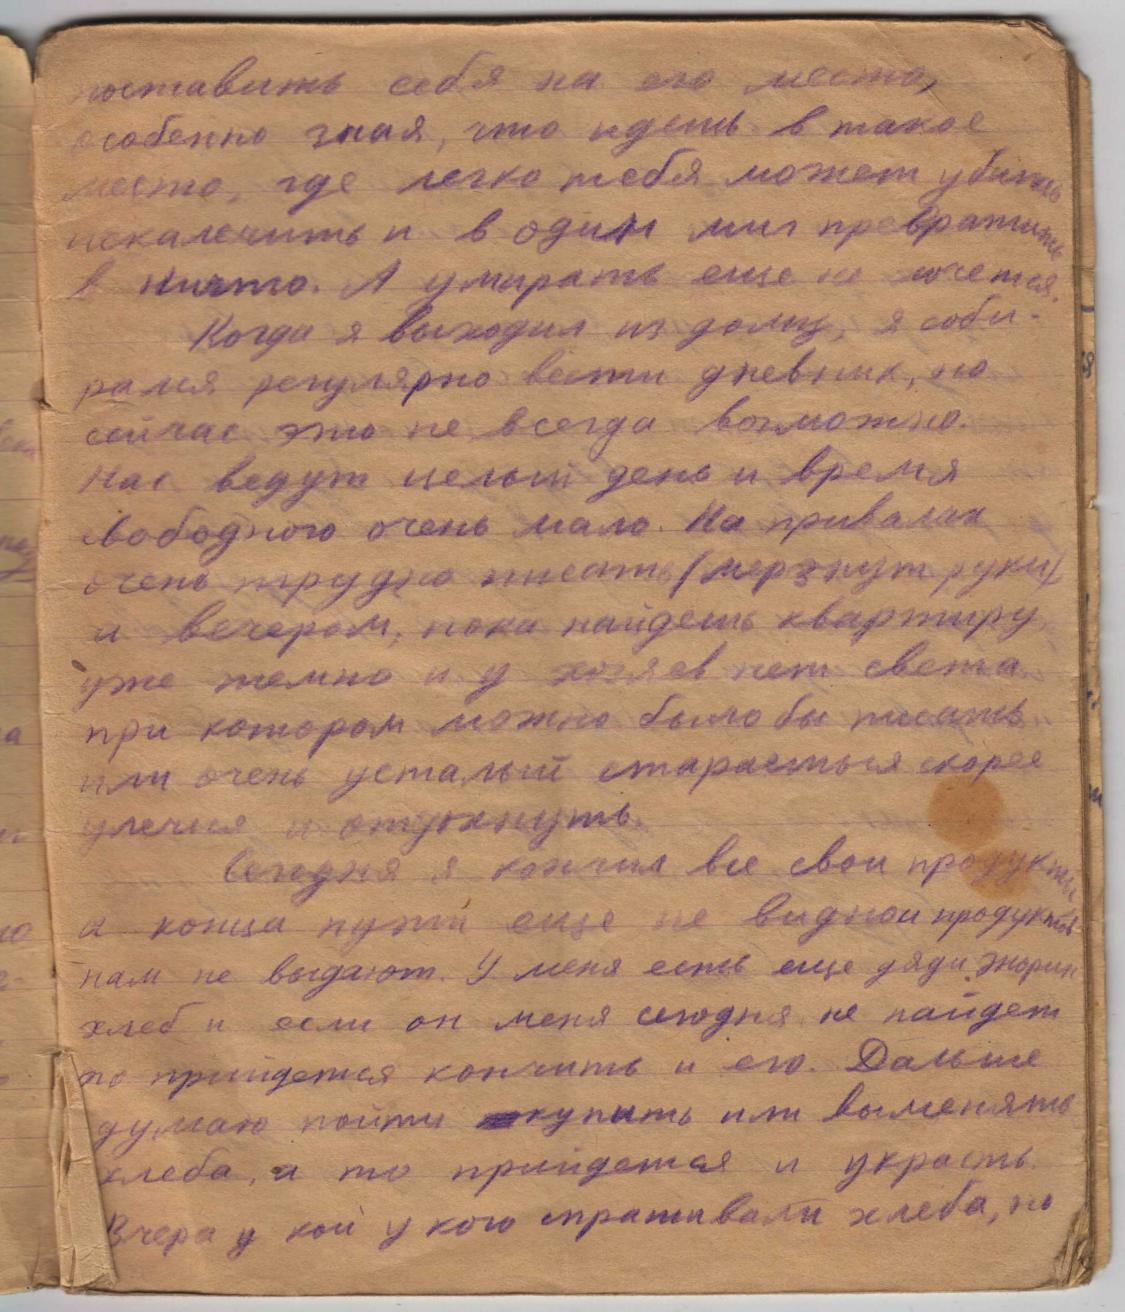 поставить себя на его место,
особенно зная, что идешь в такое
место, где легко тебя может убить
искалечить и в один миг превратить
в ничто. А умирать еще не хочется.
Когда я выходил из дому, я соби-
рался регулярно вести дневник, но
сейчас это не всегда возможно.
Нас ведут целый день и время
свободного очень мало. На привалах
очень трудно писать (мерзнут руки)
и вечером, пока найдешь квартиру,
уже темно и у хозяев нет света
при котором можно было бы писать
или очень усталый стараешься скорее
улечся и отдохнуть.
Сегодня я кончил все свои продукты
а конца пути еще не видно и продуктов
нам не выдают. У меня есть еще дяди
хлеб и если он меня сегодня не найдет
то прийдется кончить и его. Дальше
думаю пойти купить или выменять
хлеба, а то прийдется и украсть.
Вчера у кой у кого спрашивали хлеба, но